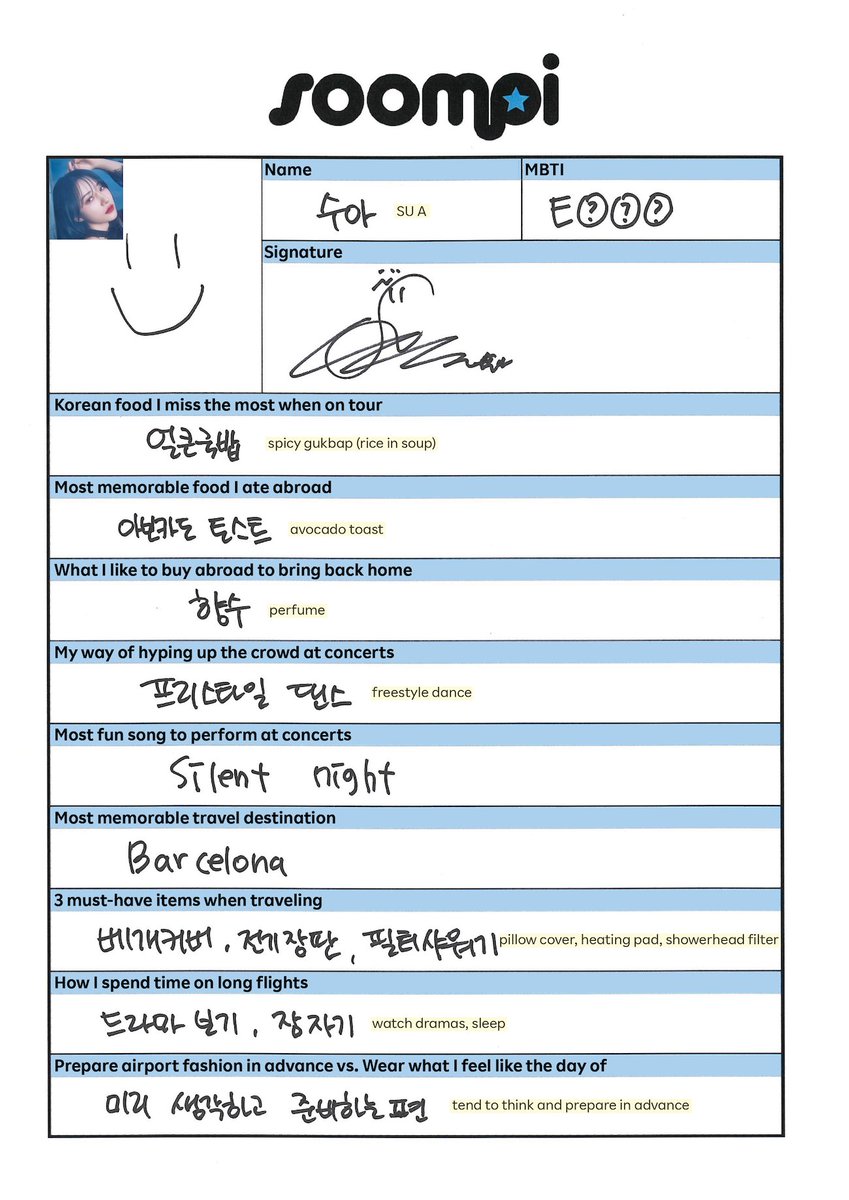 soompi
Name
MBTI
수아 SU A
E???
Signature
Korean food I miss the most when on tour
얼큰국밥 spicy gukbap (rice in soup)
Most memorable food I ate abroad
아보카도 토스트 avocado toast
What I like to buy abroad to bring back home
향수 perfume
My way of hyping up the crowd at concerts
프리스타일 댄스 freestyle dance
Most fun song to perform at concerts
Silent night
Most memorable travel destination
Barcelona
3 must-have items when traveling
베개커버, 전기장판, 필터샤워기 pillow cover, heating pad, showerhead filter
How I spend time on long flights
드라마 보기, 잠자기 watch dramas, sleep
Prepare airport fashion in advance vs. Wear what I feel like the day of
미리 생각하고 준비하는 편 tend to think and prepare in advance